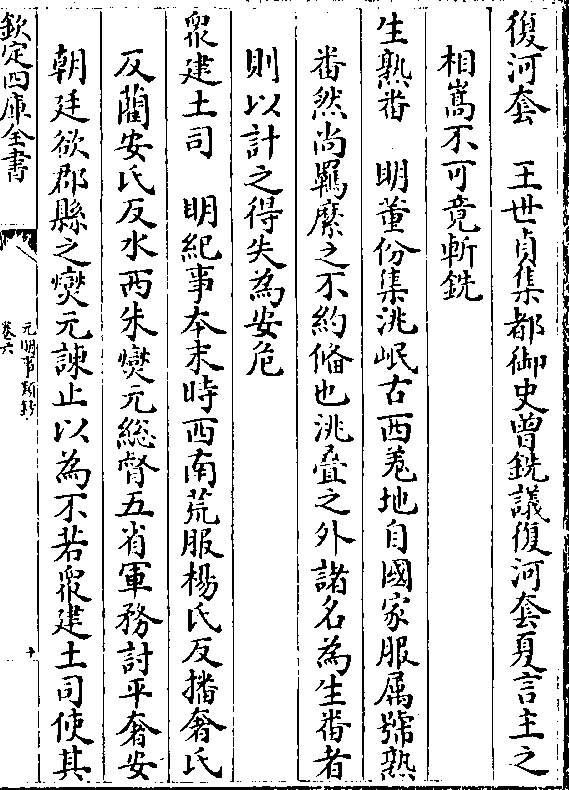 復河套　王世貞集都御史曾銑議復河套夏言主之
相嵩不可竟斬銑
生熟畨　明董份集洮岷古西羌地自國家服属號熟
畨然尚羈縻之不約脩也洮疊之外諸名為生畨者
則以計之得失為安危
衆建土司　明紀事本末時西南荒服楊氏反播奢氏
反藺安氏反水西朱爕元総督五省軍務討平奢安
朝廷欲郡縣之爕元諫止以為不若衆建土司使其
欽定四庫全書
元明事類鈔
卷六
十